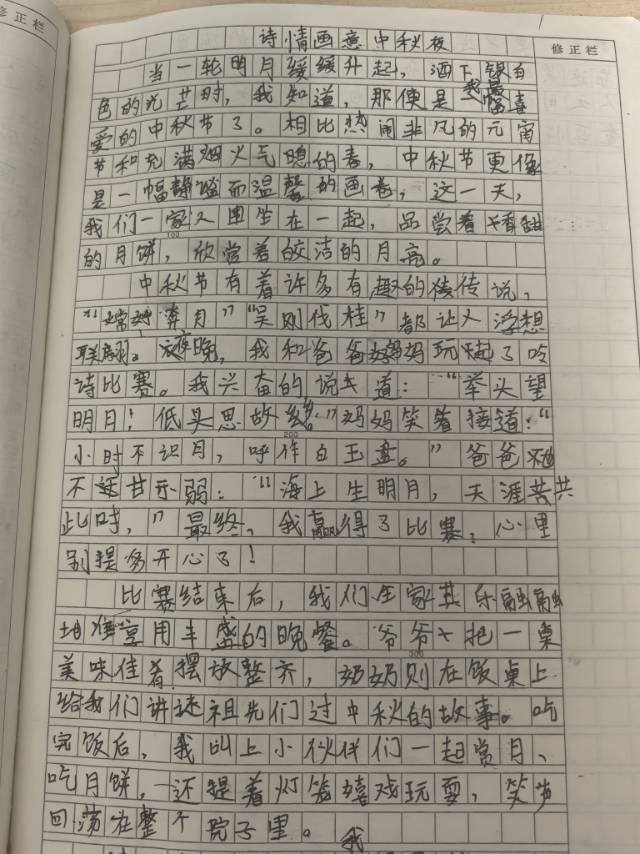 修正栏
修正栏
诗情画意中秋夜
当一轮明月缓缓升起，洒下银白
色的光芒时，我知道，那便是我最喜
爱的中秋节了。相比热闹非凡的元宵
节和充满烟火气的春，中秋节更像
是一幅静谧而温馨的画卷，这一天，
我们一家人围坐在一起，品尝着香甜
的月饼，欣赏着皎洁的月亮。
中秋节有着许多有趣的传说，
“嫦娥奔月”“吴刚伐桂”都让人浮想
联翩。夜晚，我和爸爸妈妈玩了吟
诗比赛。我兴奋的说道：“举头望
明月！低头思故乡。”妈妈笑着接道：“
小时不识月，呼作白玉盘。”爸爸
不甘示弱：“海上生明月，天涯共
此时，”最终，我赢得了比赛，心里
别提多开心了！
比赛结束后，我们全家其乐融融
地享用丰盛的晚餐。爷爷把一桌
美味佳肴摆放整齐，奶奶则在饭桌上
给我们讲述祖先们过中秋的故事。吃
完饭后，我叫上小伙伴们一起赏月、
吃月饼，还提着灯笼嬉戏玩耍，笑声
回荡在整个院子里。我